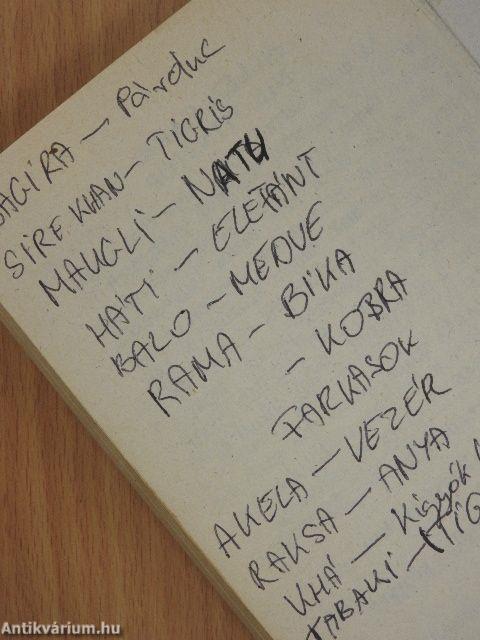 BAGIRA – Párduc
SIRE KHAN – TIGRIS
MAUGLI – NATU
HÁTI – ELEFÁNT
BALO – MEDVE
RAMA – BIKA
– KOBRA
FARKASOK
AKELA – VEZÉR
RAKSA – ANYA
KHÁ – Kígyók
TABAKI –
Antikvárium.hu